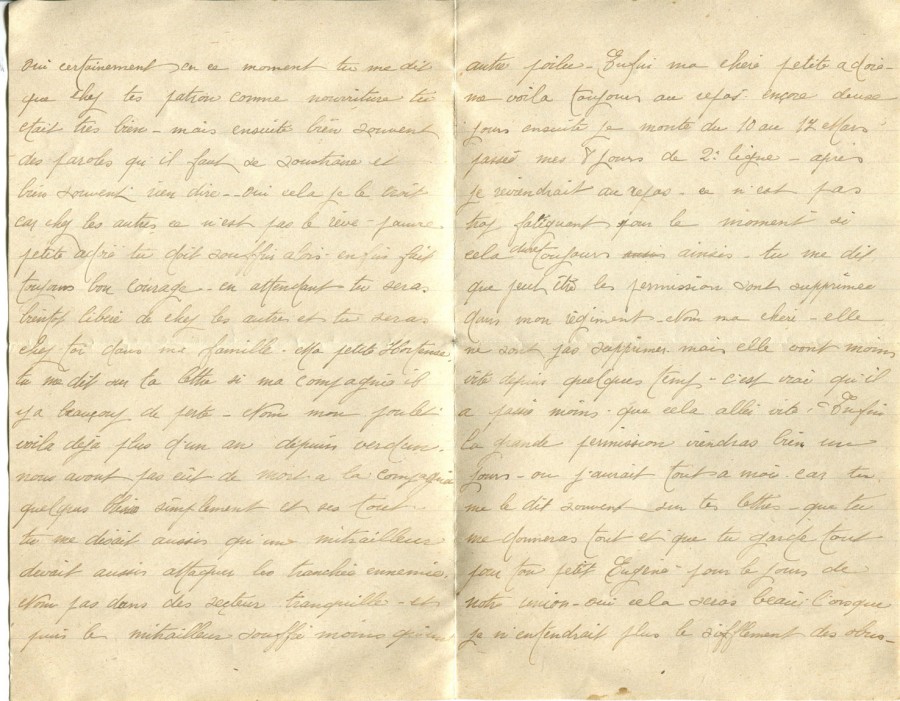 Oui certainement en ce moment tu me dit
que chez tes patron comme nourriture tu
etait tres bien - mais ensuite bien souvent
des paroles qu'il faut se soustraire et
bien souvent rien dire - oui cela je le croit
car chez les autres ce n'est pas le rêve - pauvre
petite adoré tu doit souffrir alors - enfin fait
toujours bon courage - en attendant tu seras
bientot libéré de chez les autres et tu seras
chez toi dans me famille. Ma petite Hortense
tu me dit sur la lettre si ma compagnie il
y a beauçoup de perte - Non mon poulet
voila deja plus d'un an depuis verdun
nous avont pas eut de mort a la compagnie
quelques blésés simplement et ses tout
tu me disait aussis qu'un mitrailleur
devait aussis attaquer les tranchée ennemies.
Non pas dans des secteur tranquille - et
puis le mitrailleur souffre moins qu'un
autre poilu - Enfin ma chere petite adoré -
me voila toujours au repos. encore deuse
jours ensuite je monte du 10 au 12 Mars
passés mes 8 jours de 2e ligne - après
je reviendrait au repos - ce n'est pas
trop fatiguant pour le moment si
cela dure toujours ainsis - tu me dit
que peut être les permission sont supprimée
dans mon régiment - Non ma chere - elle
ne sont pas supprimer mais elle vont moins
vite depuis quelques temps - c'est vrai qu'il
a passé moins que cela aller vite. Enfin
la grande permission viendras bien un
jours - ou j'aurait tout a moi car tu
me le dit souvent sur tes lettres - que tu
me donneras tout et que tu garde tout
pour ton petit Eugene - pour le jours de
notre union - oui cela seras beau lorsque
je n'entendrait plus le sifflement des obus -